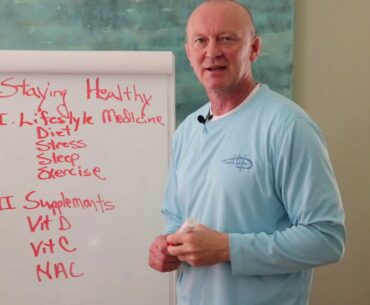 Staying Healthy
I. Lifestyle Medicine
Diet
Stress
Sleep
Exercise
II Supplements
Vit D
Vit C
NAC